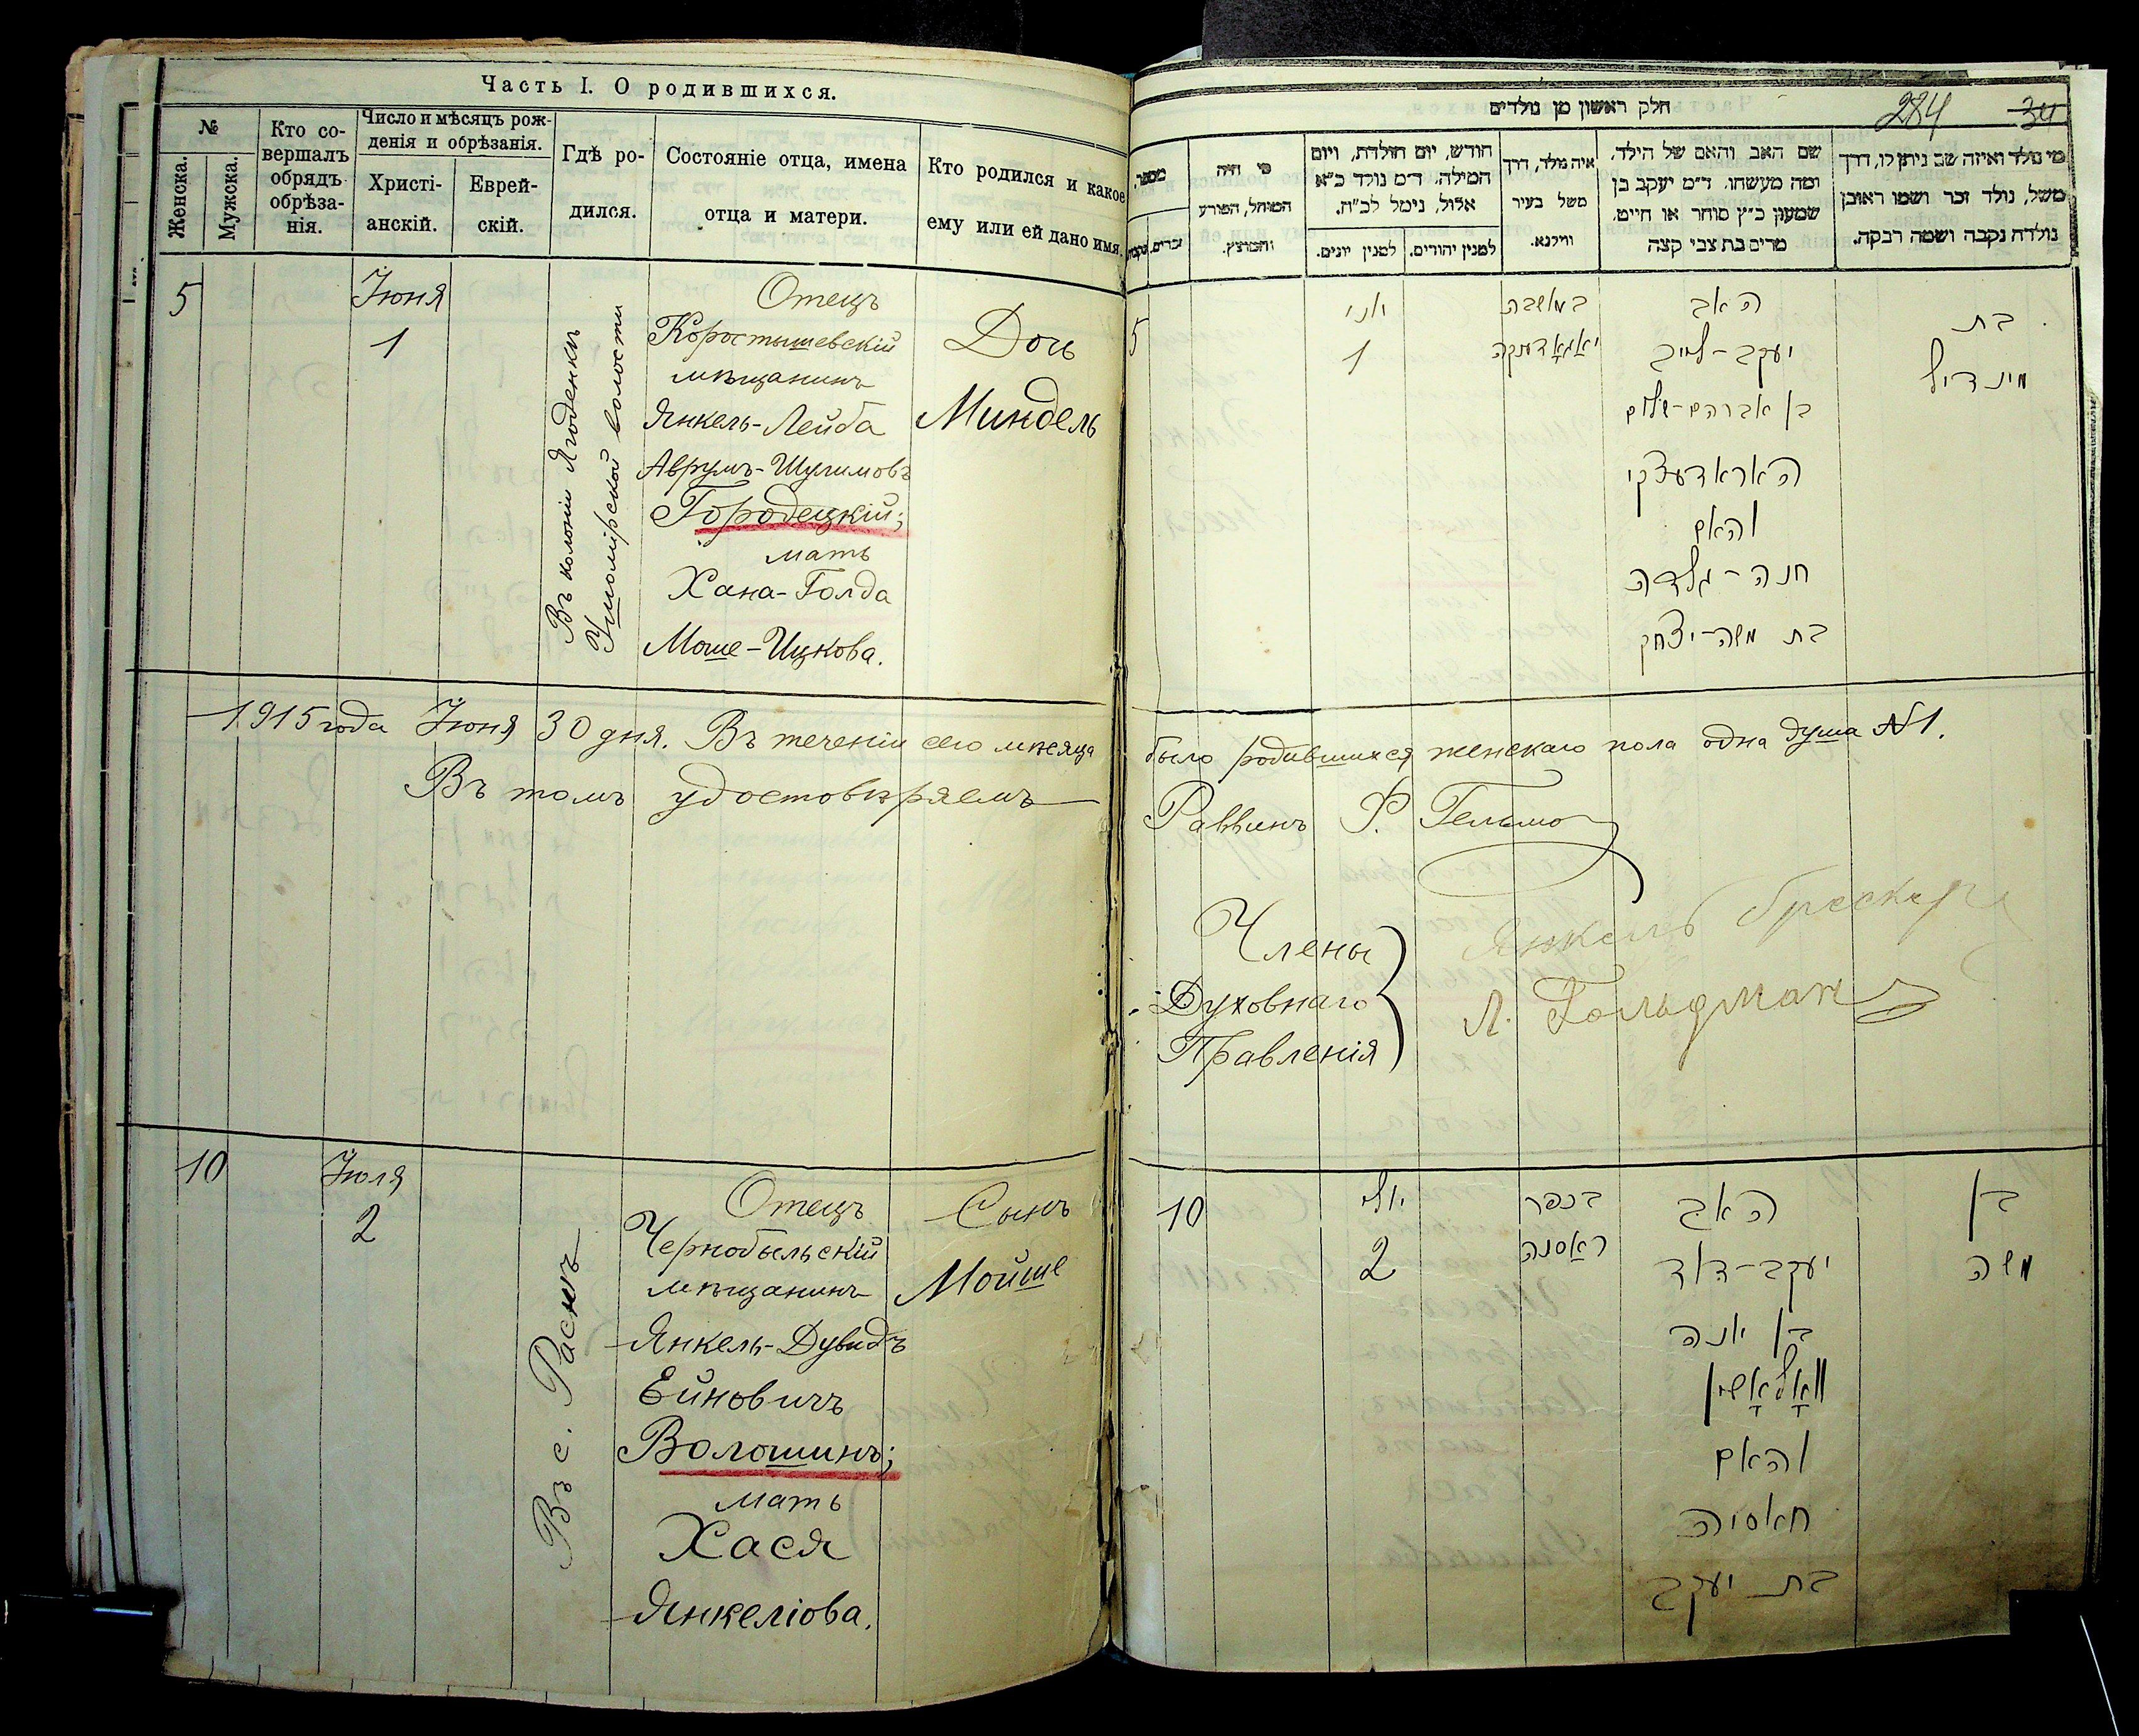 Часть I. О родившихся.
№
Женска.
Мужска.
Кто со-
вершалъ
обрядъ
обрѣза-
нія.
Число и мѣсяцъ рож-
денія и обрѣзанія.
Христі-
анскій.
Еврей-
скій.
Гдѣ ро-
дился.
Состояніе отца, имена
отца и матери.
Кто родился и какое
ему или ей дано имя.
5
Іюня
1
Въ колоніи Ягоденкѣ
Ушомірской волости
Отецъ
Коростышевскій
мѣщанинъ
Янкель-Лейба
Аврумъ-Шулимовъ
Городецкій;
мать
Хана-Голда
Моше-Ицкова.
Дочь
Миндель
1915 года Іюня 30 дня. Въ теченіи сего мѣсяца
Въ томъ удостовѣряемъ
10
Іюля
2
Въ с. Раснѣ
Отецъ
Чернобыльскій
мѣщанинъ
Янкель-Дувидъ
Ейновичъ
Волошинъ;
мать
Хася
Янкеліова.
Сынъ
Мойше
חלק ראשון מן נולדים
284
34
מספר,
זכרים.
מי היה
המוהל, הפורע
והמוצץ.
חודש, יום הולדת, ויום
המילה. ד״מ נולד כ״א
אלול, נימל לכ״ח.
למנין יהודים.
למנין יונים.
איה נולד, דרך
משל בעיר
ווילנא.
שם האב והאם של הילד,
ומה מעשהו. ד״מ יעקב בן
שמעון כ״ץ סוחר או חייט.
מרים בת צבי קצה
מי נולד ואיזה שם ניתן לו, דרך
משל, נולד זכר ושמו ראובן
נולדה נקבה ושמה רבקה.
5
יוני
1
במאשבה
יאגאדענקה
האב
יעקב-לייב
בן אברהם-שלום
האראדעצקי
והאם
חנה-גלדה
בת משה-יצחק
בת
מינדיל
было родившихся женскаго пола одна душа №1.
Раввинъ
Члены
Духовнаго
Правленія
Янкель
Л. Гольдманъ
10
יולי
2
בכפר
ראסנה
האב
יעקב-דוד
בן יונה
וואָלאָשין
והאם
חאסיה
בת יעקב
בן
משה